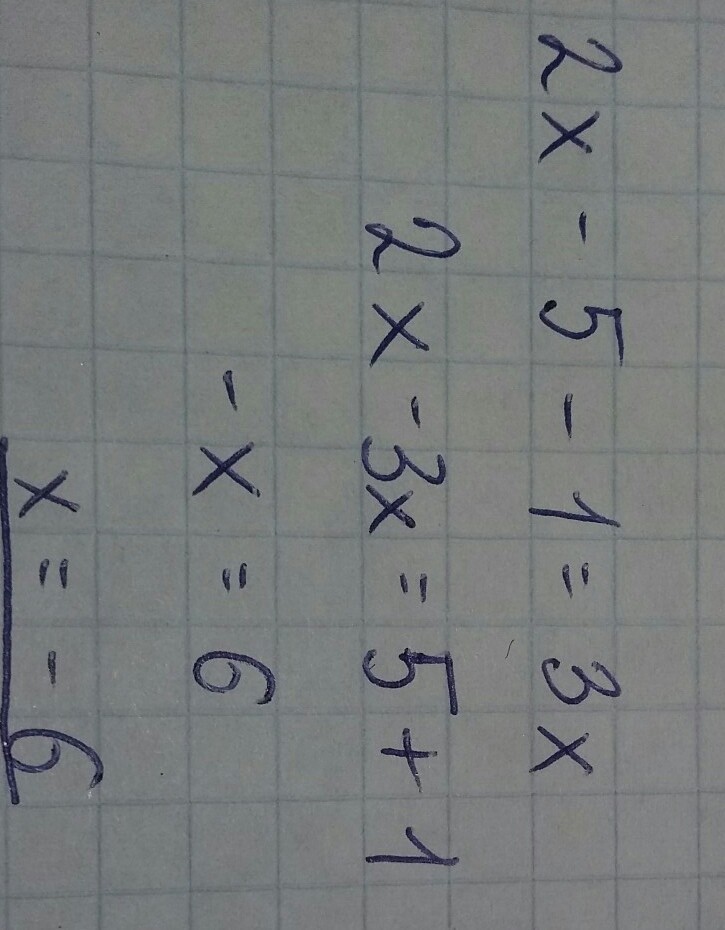 2x - 5 - 1 = 3x
2x - 3x = 5 + 1
-x = 6
x = - 6